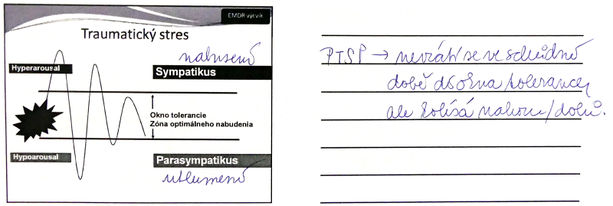 EMDR výcvik
Traumatický stres
nabuzení
Hyperarousal
Sympatikus
Okno tolerance
Zóna optimálneho nabudenia
Hypoarousal
Parasympatikus
utlumení
PTSP → nevrátí se ve schůdné
době do okna tolerance,
ale kolísá nahoru/dolů.